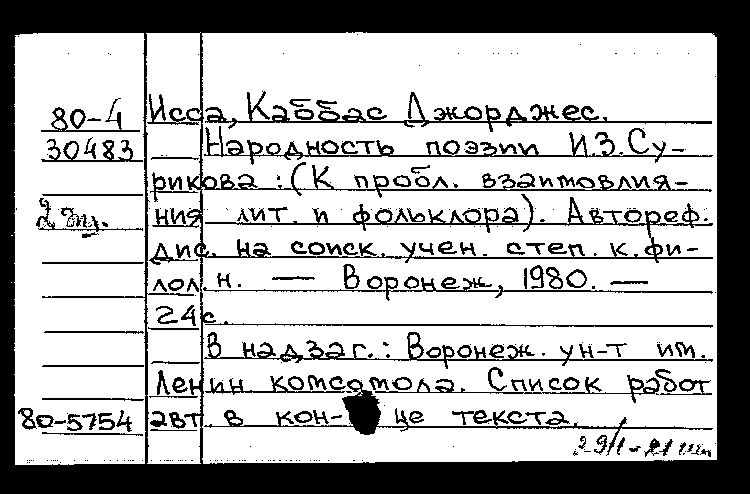 80-4 Исса, Каббас Джорджес.
30483 Народность поэзии И.З.Су-
рикова : (К пробл. взаимовлия-
2 экз. ния лит. и фольклора). Автореф.
дис. на соиск. учен. степ. к.фи-
лол.н. — Воронеж, 1980. —
24с.
В надзаг.: Воронеж. ун-т им.
Ленин комсомола. Список работ
80-5754 авт. в кон- це текста.